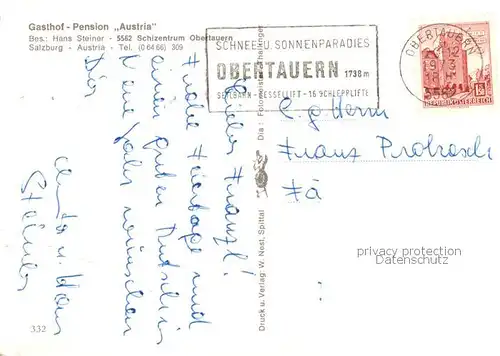 Gasthof - Pension „Austria"
Bes.: Hans Steiner - 5562 Schizentrum Obertauern
Salzburg - Austria - Tel. (0 64 66) 309
SCHNEE U. SONNENPARADIES
OBERTAUERN 1738 m
SEILBAHN - SESSELLIFT - 16 SCHLEPPLIFTE
OBERTAUERN
REPUBLIK ÖSTERREICH
Lieber Franzl!
Frohe Feiertage und
einen guten Rutsch in
Neue Jahr wünschen
Dir
u. Hans
Steiner
Herrn
Franz
Fa
Druck u. Verlag W. Nest, Spittal
Dia:
privacy protection
Datenschutz
332